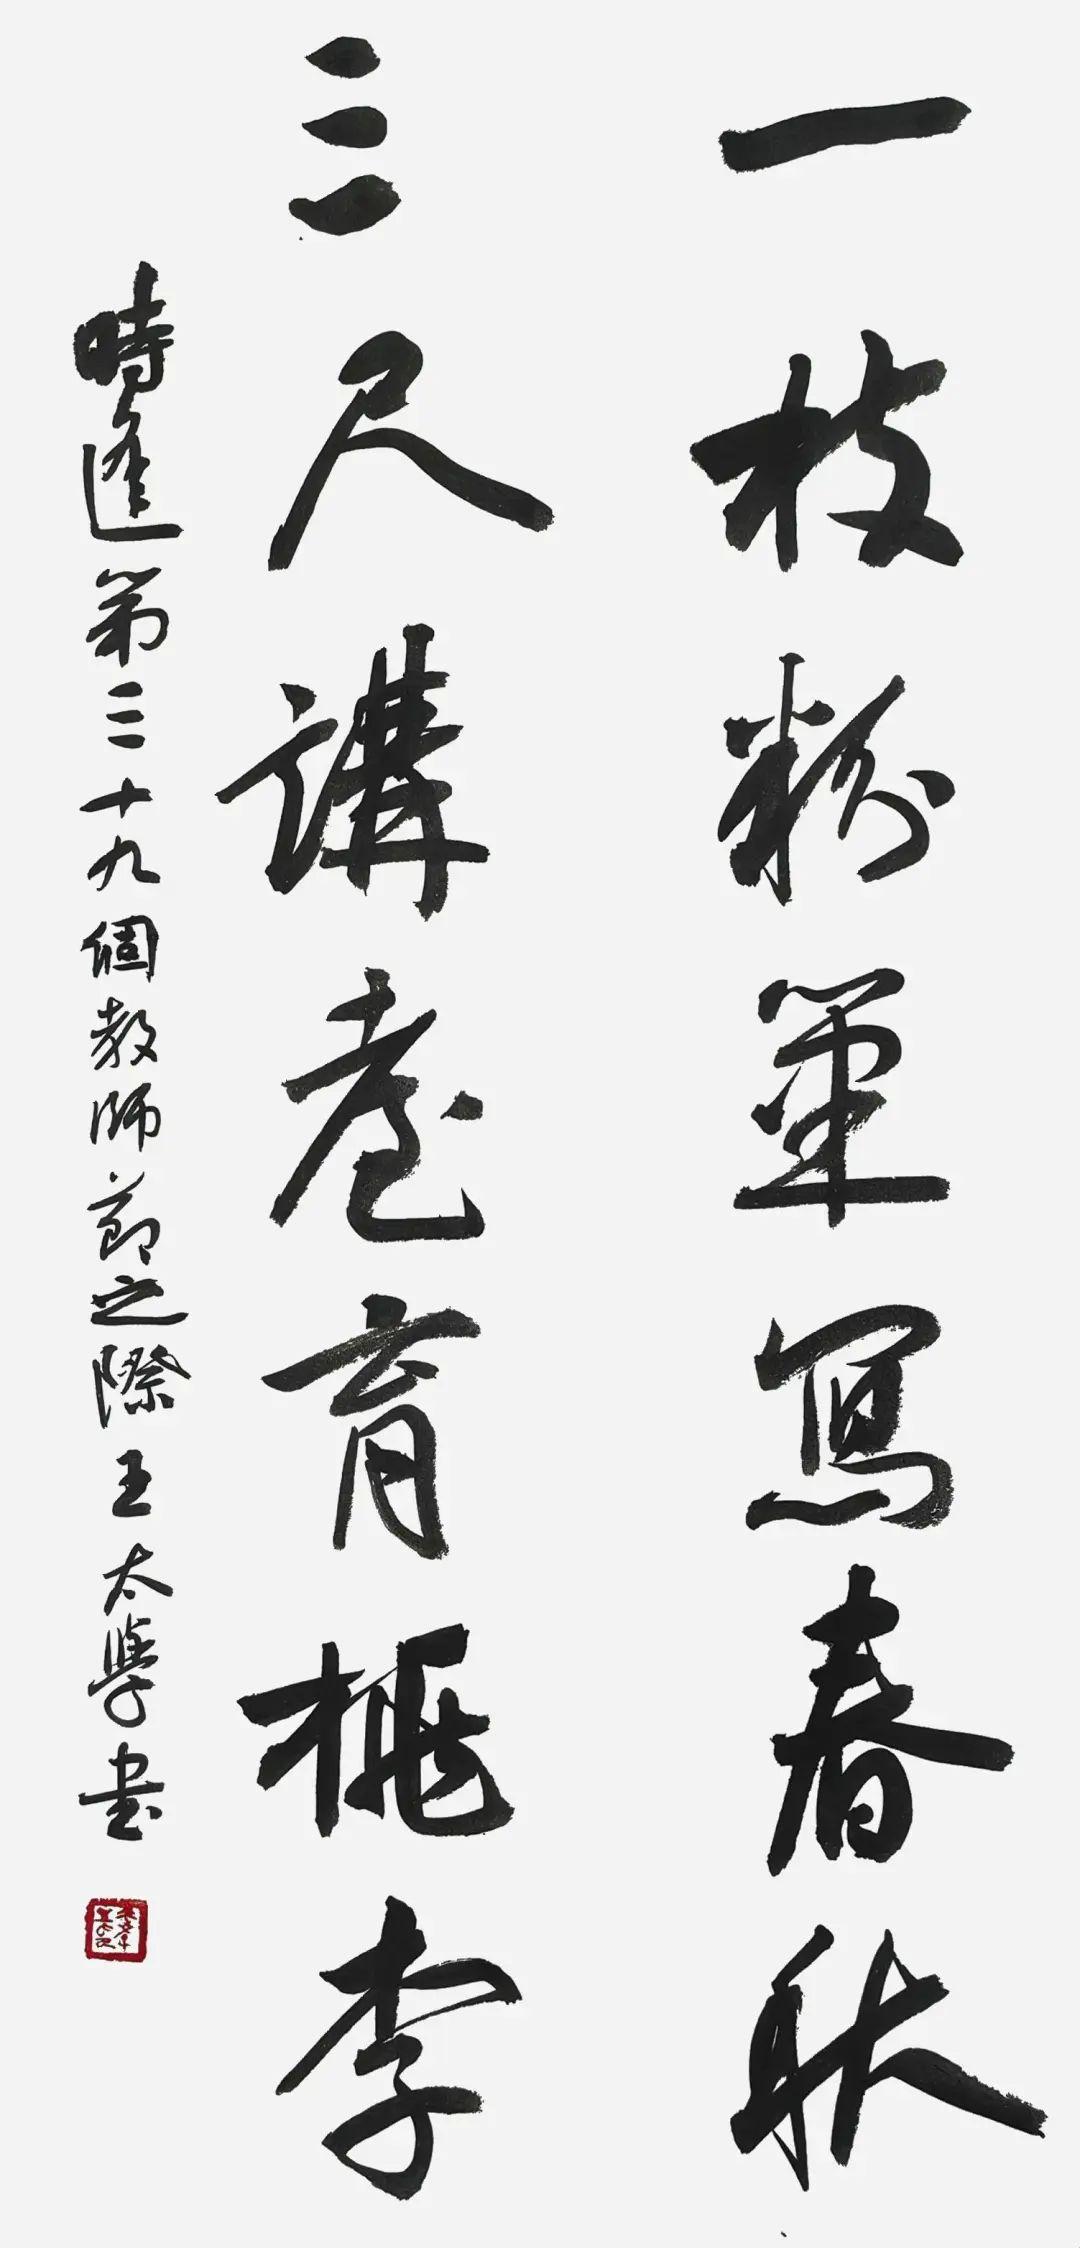 一枝粉筆寫春秋
三尺講臺育桃李
時逢第三十九個教師節之際王太學書